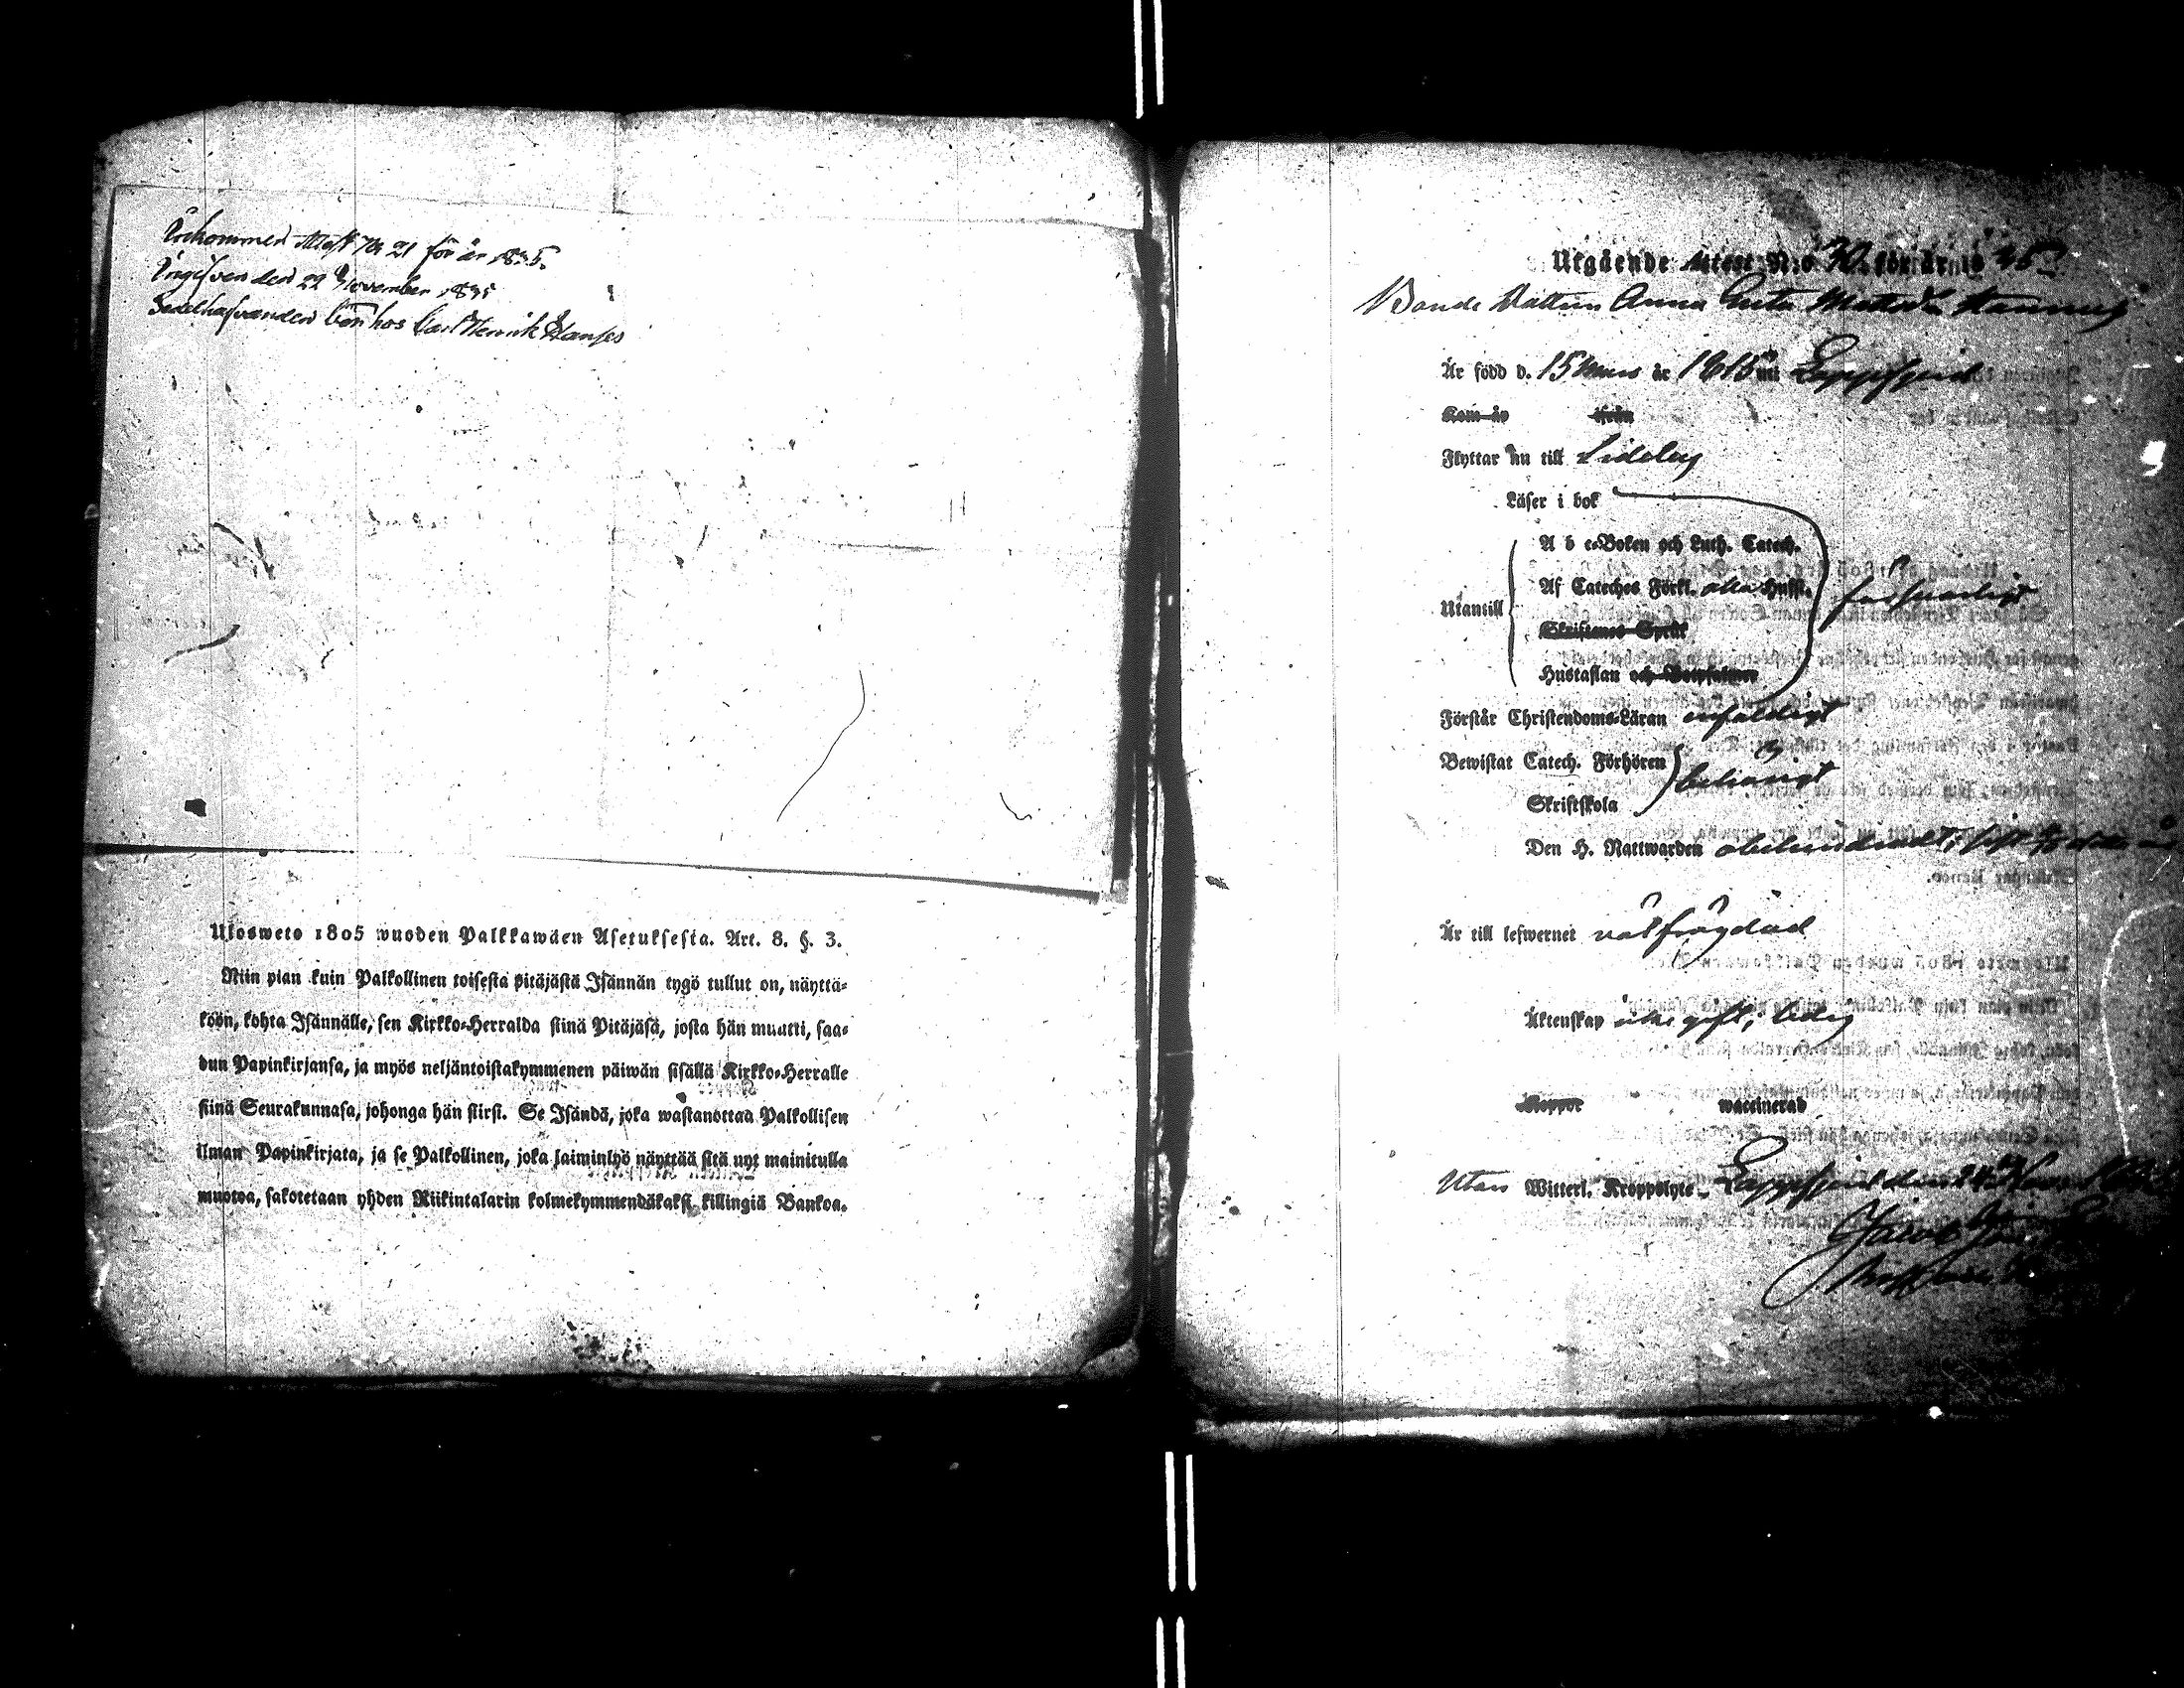 Inkommen Attest No 21 för år 1835.
Ingifven den 22 November 1835
Sedelhafvanden bor hos Carl Henrik Hanses
Ulosweto 1805 wuoden Palkkawäen Asetuksesta. Art. 8. §. 3.
Niin pian kuin Palkollinen toisesta pitäjästä Isännän tygö tullut on, näyttä-
köön, kohta Isännälle, sen Kirkko-Herralda siinä Pitäjäsä, josta hän muutti, saa-
dun Papinkirjansa, ja myös neljäntoistakymmenen päiwän sisällä Kirkko-Herralle
siinä Seurakunnasa, johonga hän siirsi. Se Isändä, joka wastanottaa Palkollisen
ilman Papinkirjata, ja se Palkollinen, joka laiminlyö näyttää sitä nyt mainitulla
muotoa, sakotetaan yhden Riikintalarin kolmekymmendäkaksi killingiä Bankoa.
Utgående Attest N:o 30 för år 1835
Bonde Dottren Anna Greta Matts
Är född d. 15 Mars år 1815 uti Lappfjerd
Kom år ifrån
Flyttar nu till Sideby
Läser i bok
A b c-Boken och Luth. Catech.
Af Cateches Förkl. alla Hufst. försvarligt
Utantill
Skriftenes Språk
Hustaflan och Botpsalmer
Förstår Christendoms-Läran enfaldigt
Bewistat Catech. Förhören behörigt
Skriftskola
Den H. Nattwarden obehindradt, sist
Är till lefwernet välfrägdad
Äktenskap icke gift; ledig
Koppor waccinerad
Utan Witterl. Kroppslyte. Lappfjerd den 24 Nov.
Jacob